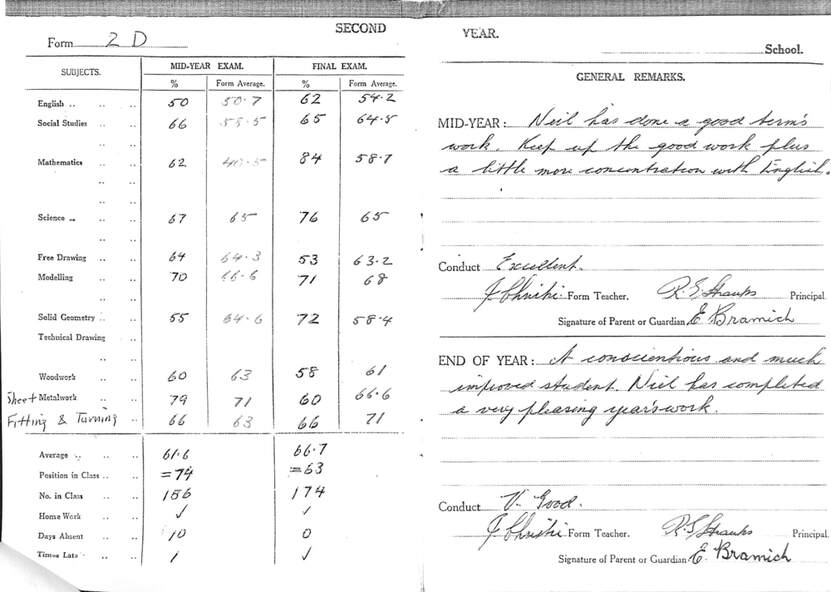 SECOND
Form 2 D
SUBJECTS. MID-YEAR EXAM. FINAL EXAM.
% Form Average. % Form Average.
English .. .. .. 50 50.7 62 54.2
Social Studies .. .. 66 55.5 65 64.5
Mathematics .. .. 62 40.5 84 58.7
Science .. .. .. 67 65 76 65
Free Drawing .. .. 64 64.3 53 63.2
Modelling .. .. 70 66.6 71 68
Solid Geometry .. .. 55 64.6 72 58.4
Technical Drawing ..
Woodwork .. .. 60 63 58 61
Sheet Metalwork .. .. 79 71 60 66.6
Fitting & Turning .. 66 63 66 71
Average .. .. .. 61.6 66.7
Position in Class .. .. =74 =63
No. in Class .. .. 156 174
Home Work .. .. ✓ ✓
Days Absent .. .. 10 0
Times Late .. .. 1 ✓
YEAR.
School.
GENERAL REMARKS.
MID-YEAR: Neil has done a good term's
work. Keep up the good work plus
a little more concentration with English.
Conduct Excellent.
J Christie Form Teacher. Principal
Signature of Parent or Guardian E Bramich
END OF YEAR: A conscientious and much
improved student. Neil has completed
a very pleasing year's work.
Conduct V. Good.
J Christie Form Teacher. Principal
Signature of Parent or Guardian E. Bramich